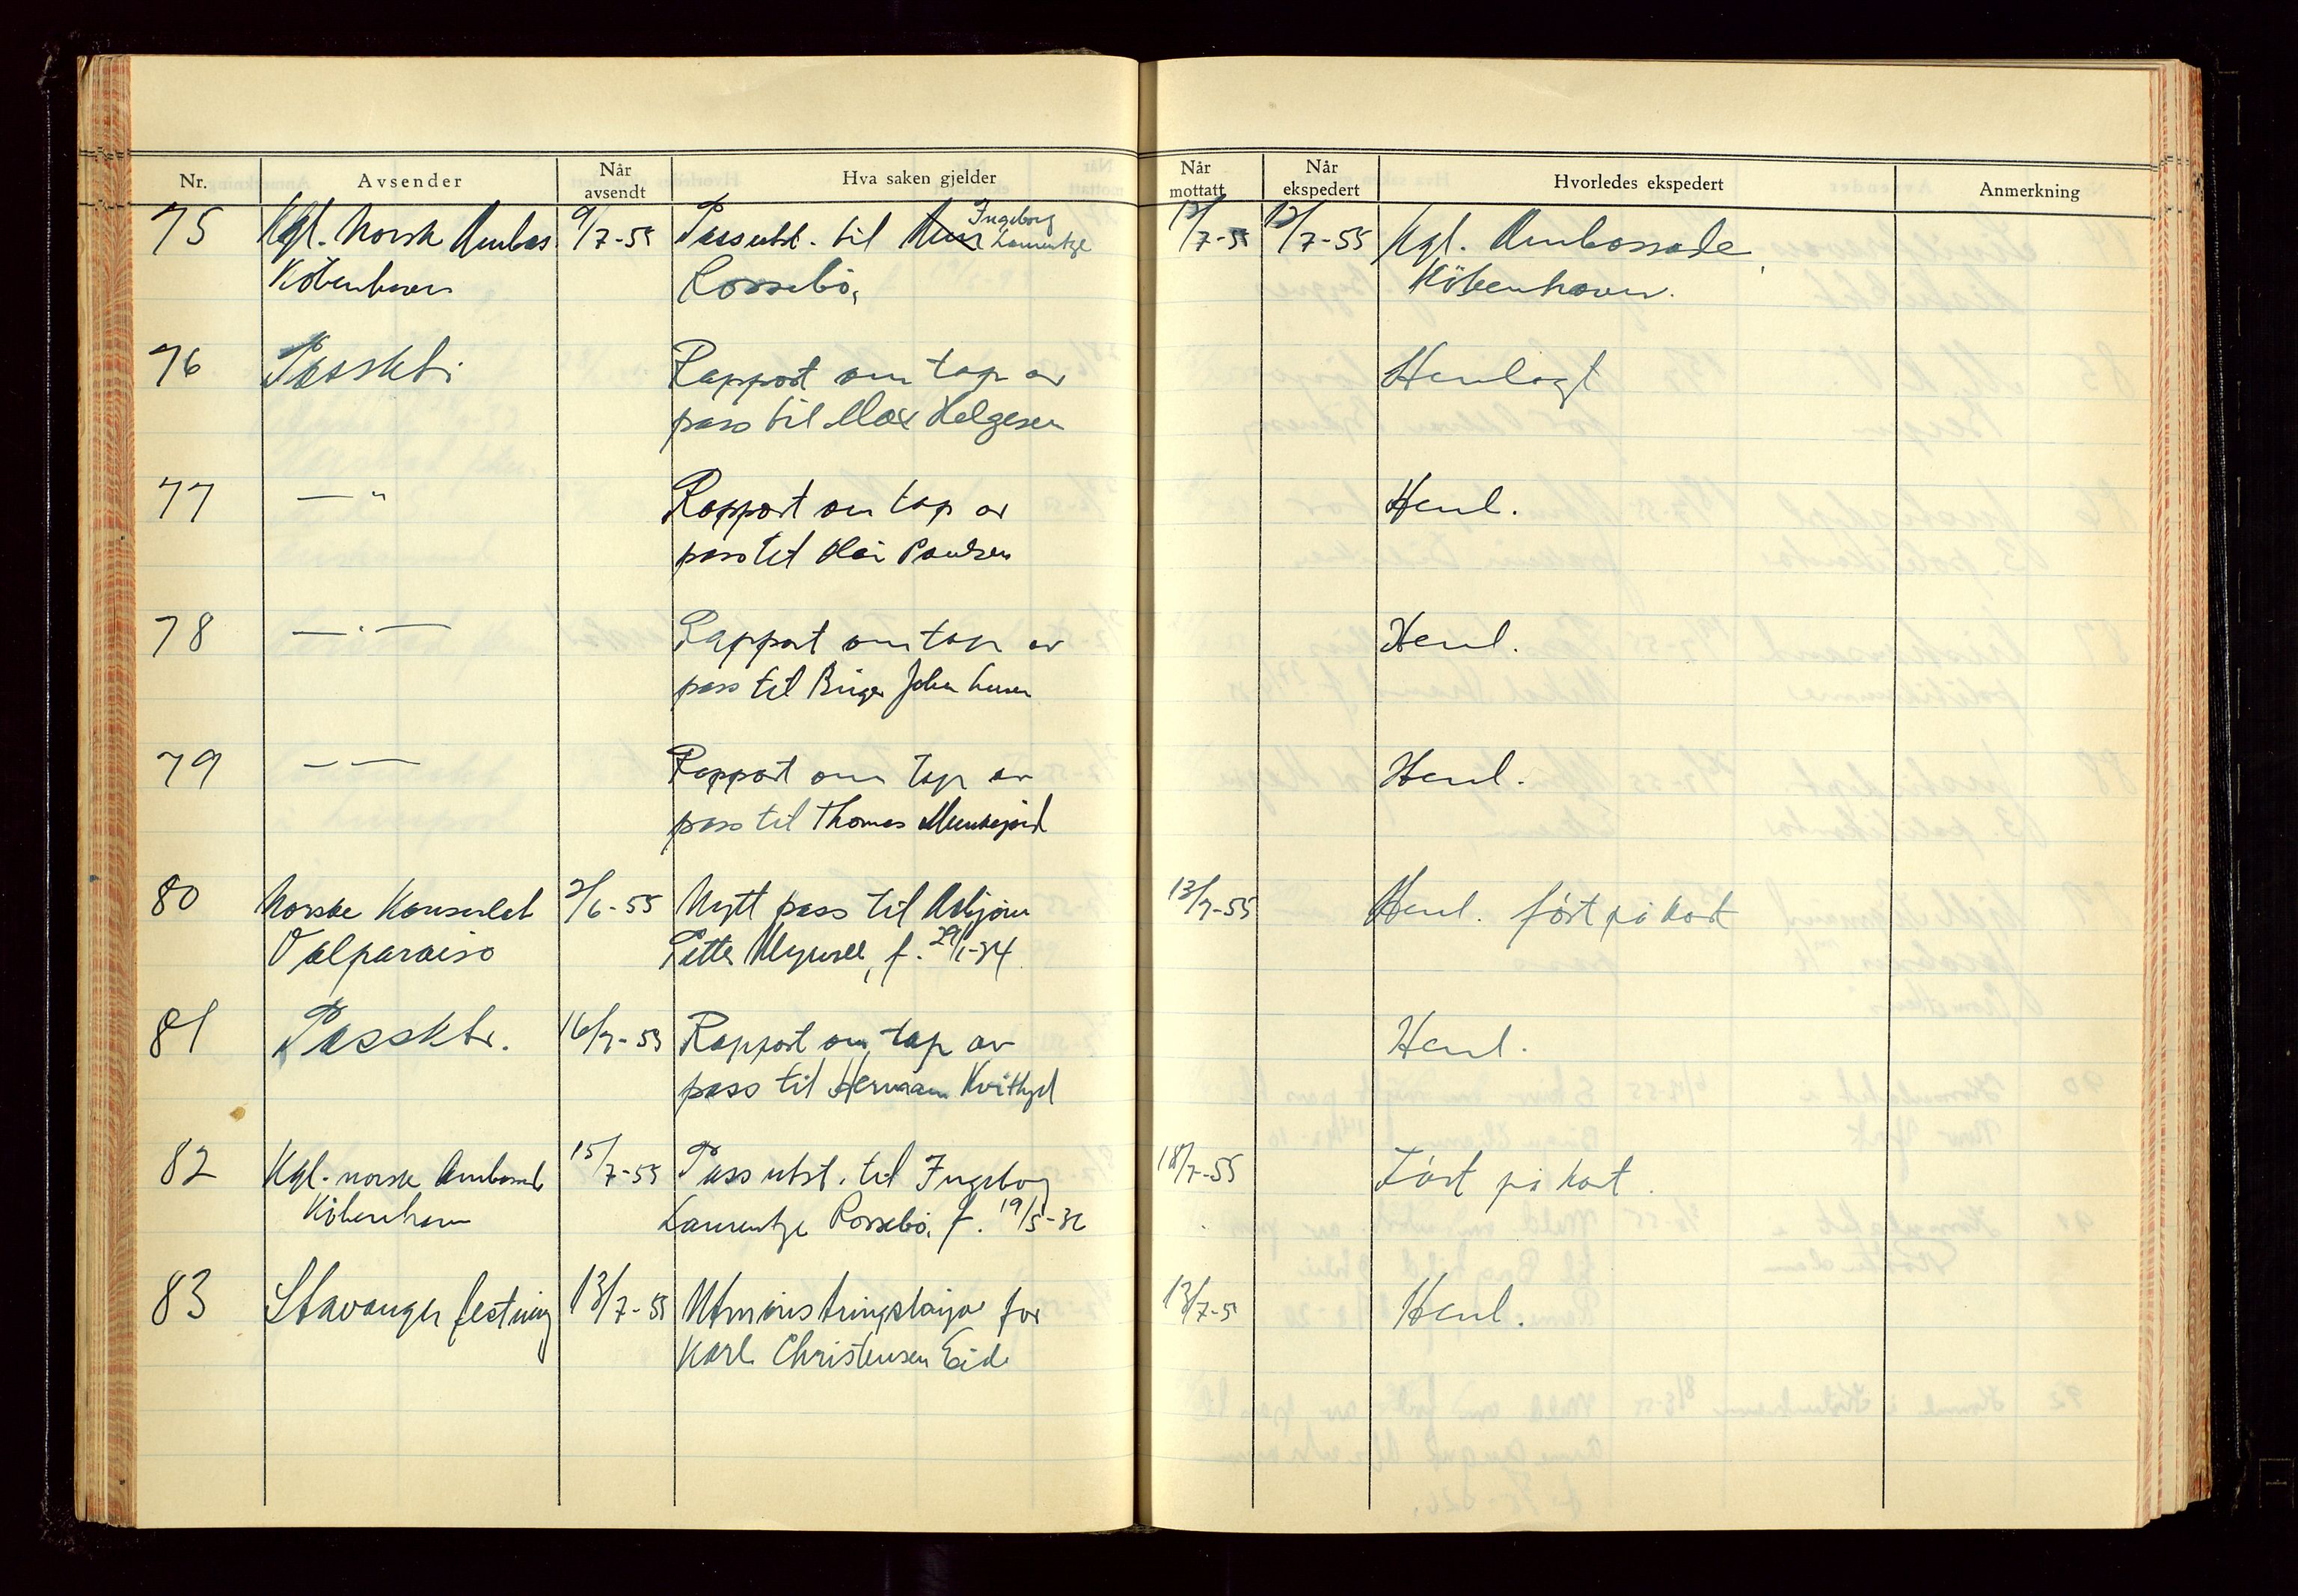 Nr. Avsender Når avsendt Hva saken gjelder Når mottatt Når ekspedert Hvorledes ekspedert Anmerkning
75 Kgl. Norsk Ambas 9/7-55 Passutst. til Ingeborg Laurentze 12/7-55 12/7-55 Kgl. Ambassade
København Rossebø, København.
76 Passktr. Rapport om tap av Henlagt
pass til Max Helgesen
77 — " Rapport om tap av Henl.
pass til Paulsen
78 — . — Rapport om tap av Henl.
pass til Birger Johan
79 — — Rapport om tap av Henl.
pass til Thomas Munkejord
80 Norske Konsulat 2/6-55 Nytt pass til Asbjørn 13/7-55 Henl. ført på kort
Valparaiso Petter f. 29/1-34
81 Passktr. 16/7-55 Rapport om tap av Henl.
pass til Herman
82 Kgl. norske Ambassade 15/7-55 Pass utst. til Ingeborg 18/7-55 Ført på kort.
København Laurentze Rossebø, f. 19/5-36
83 Stavanger festning 13/7-55 for 13/7-5 Henl.
Karl Christensen Eide